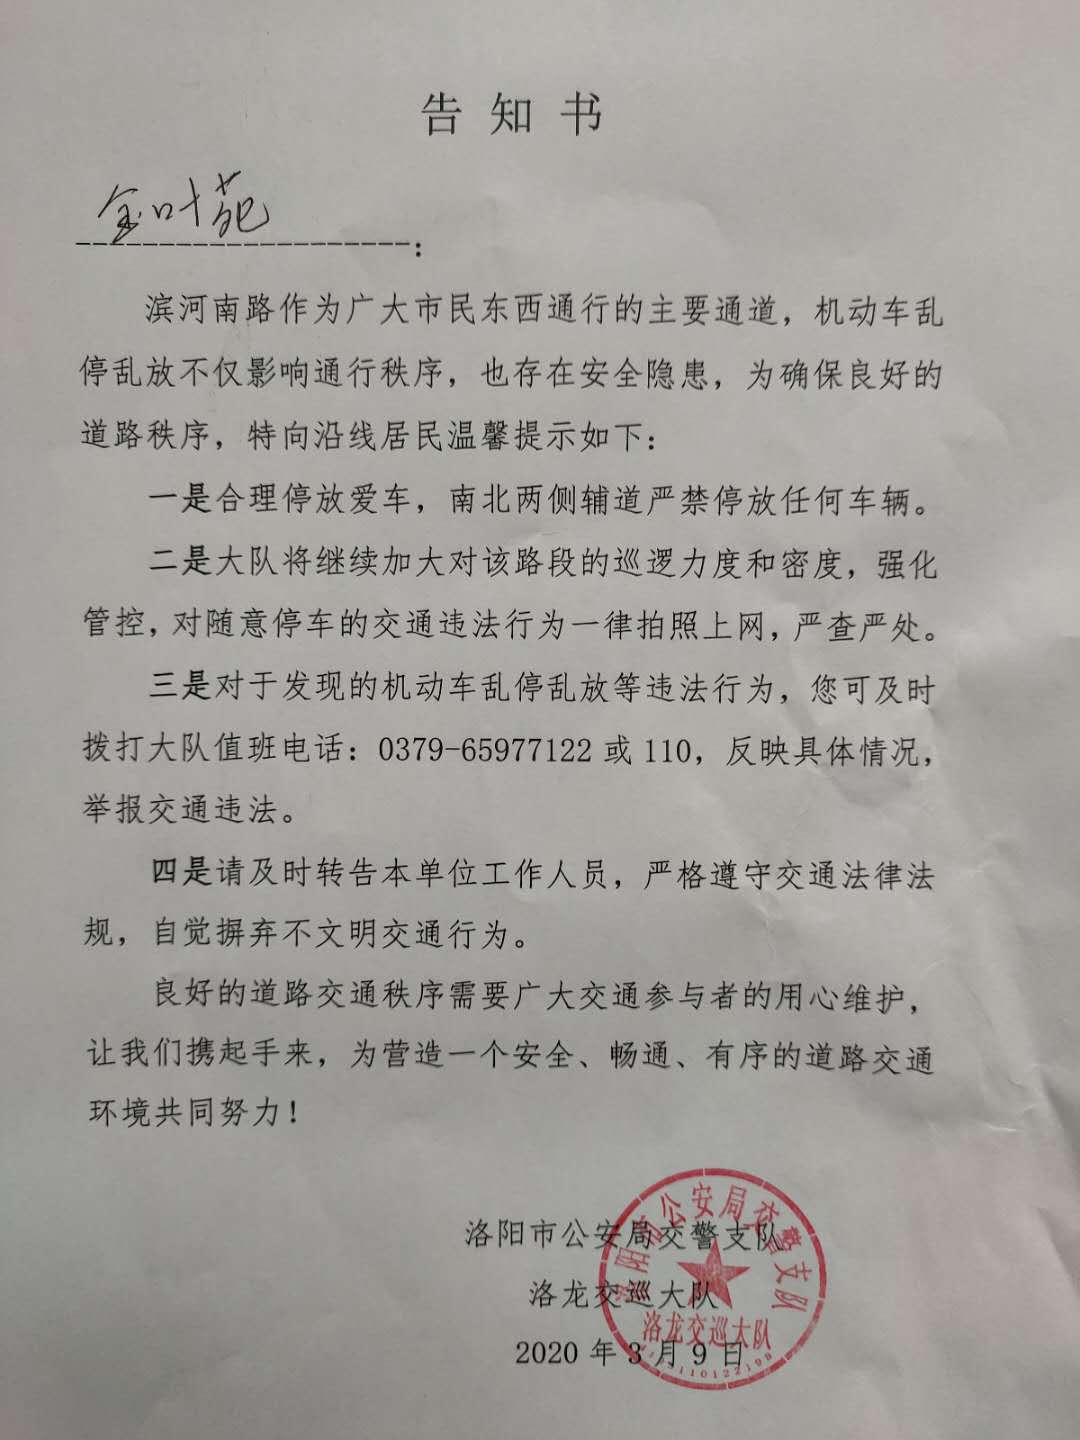 告知书
金叶苑:
滨河南路作为广大市民东西通行的主要通道，机动车乱
停乱放不仅影响通行秩序，也存在安全隐患，为确保良好的
道路秩序，特向沿线居民温馨提示如下：
一是合理停放爱车，南北两侧辅道严禁停放任何车辆。
二是大队将继续加大对该路段的巡逻力度和密度，强化
管控，对随意停车的交通违法行为一律拍照上网，严查严处。
三是对于发现的机动车乱停乱放等违法行为，您可及时
拨打大队值班电话：0379-65977122或110，反映具体情况，
举报交通违法。
四是请及时转告本单位工作人员，严格遵守交通法律法
规，自觉摒弃不文明交通行为。
良好的道路交通秩序需要广大交通参与者的用心维护，
让我们携起手来，为营造一个安全、畅通、有序的道路交通
环境共同努力！
洛阳市公安局交警支队
洛龙交巡大队
2020年3月9日
洛阳市公安局交警支队
洛龙交巡大队